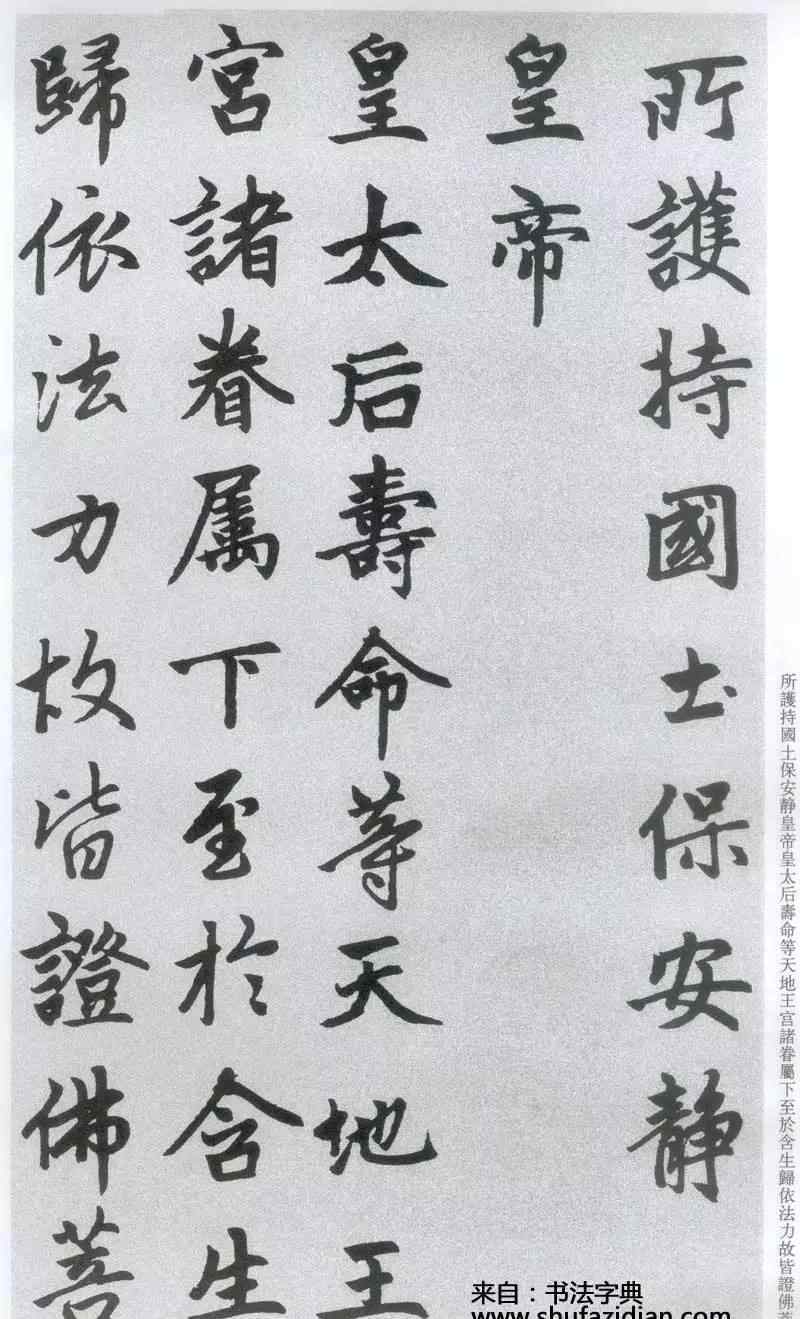 所護持國土保安静
皇帝
皇太后壽命等天地王
宫諸眷属下至於含生
歸依法力故皆證佛菩
所護持國土保安静皇帝皇太后壽命等天地王宫諸眷屬下至於含生歸依法力故皆證佛菩
来自：书法字典
www.shufazidian.com